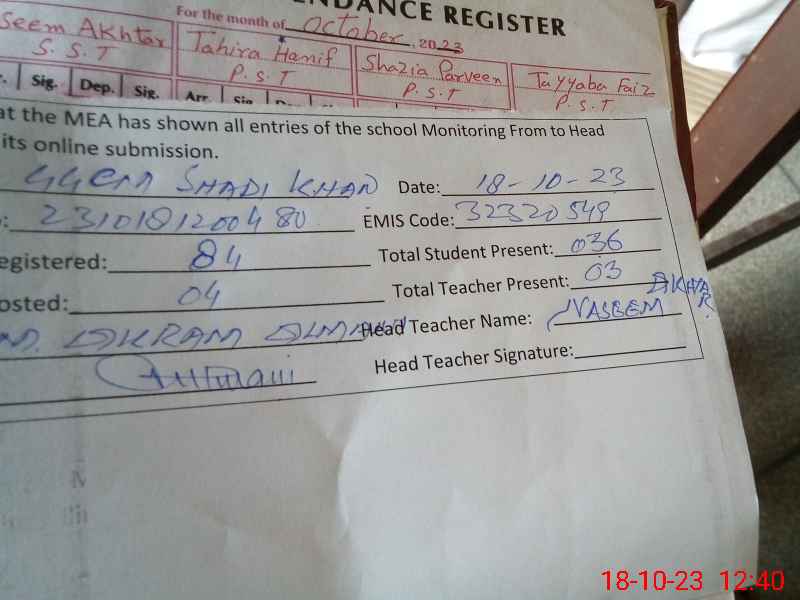 NDANCE REGISTER
For the month of October, 2023
seem Akhtar Tahira Hanif Shazia Parveen Tayyaba Faiz
S.S.T P.S.T P.S.T P.S.T
Sig. Dep. Sig. Arr. Sig
at the MEA has shown all entries of the school Monitoring From to Head
its online submission.
GGEM SHADI KHAN Date: 18-10-23
23101812004 80 EMIS Code: 32320549
egistered: 84 Total Student Present: 036
osted: 04 Total Teacher Present: 03
M. AKRAM Head Teacher Name: NASEEM AKHTAR
Head Teacher Signature:
18-10-23 12:40